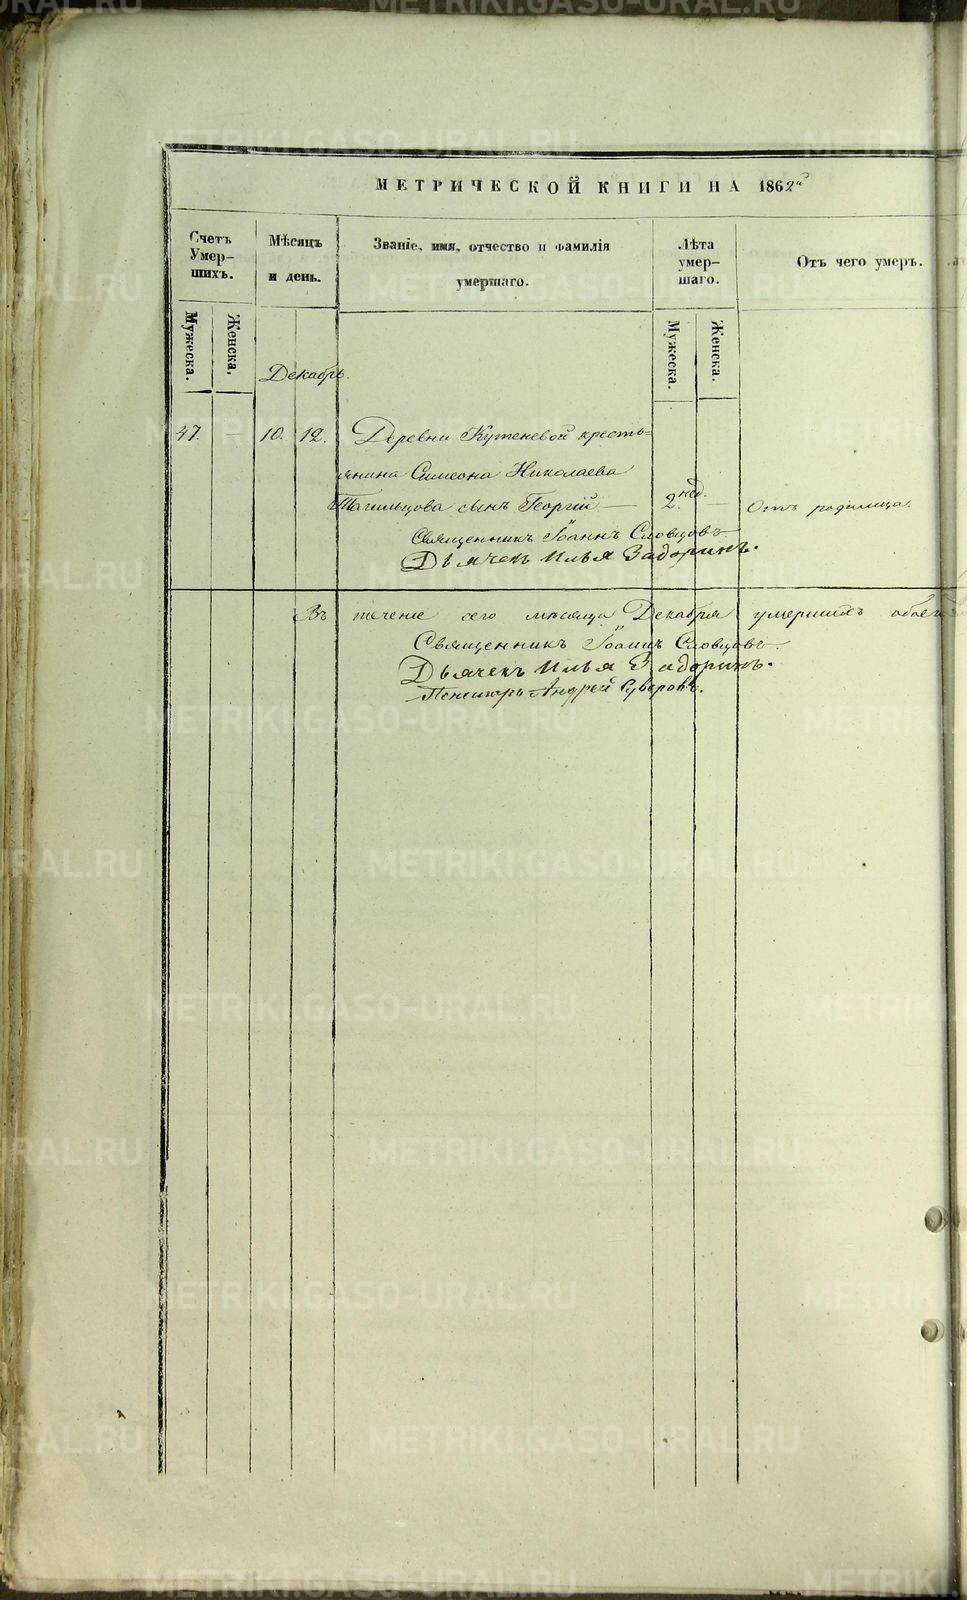 МЕТРИЧЕСКОЙ КНИГИ НА 1862й
Счетъ Умер-шихъ.
Мѣсяцъ и день.
Званіе, имя, отчество и фамилія умершаго.
Лѣта умер-шаго.
Отъ чего умеръ.
Мужеска.
Женска.
Мужеска.
Женска.
Декабрь.
47. — 10. 12. Деревни Кутеневой кресть=
янина Симеона Николаева
Тагильцова сынъ Георгій — 2. нед. — Отъ родимца.
Священникъ Іоаннъ Словцовъ
Дьячекъ Илья Задоринъ.
Въ течение сего мѣсяца Декабря умершихъ обоег
Священникъ Іоаннъ Словцовъ.
Дьячекъ Илья Задоринъ.
Пономарь Андрей Суворовъ.
METRIKI.GASO-URAL.RU